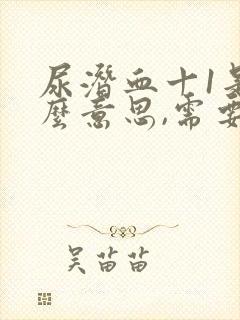 尿潜血十1是
麼意思,需要
吴苗苗